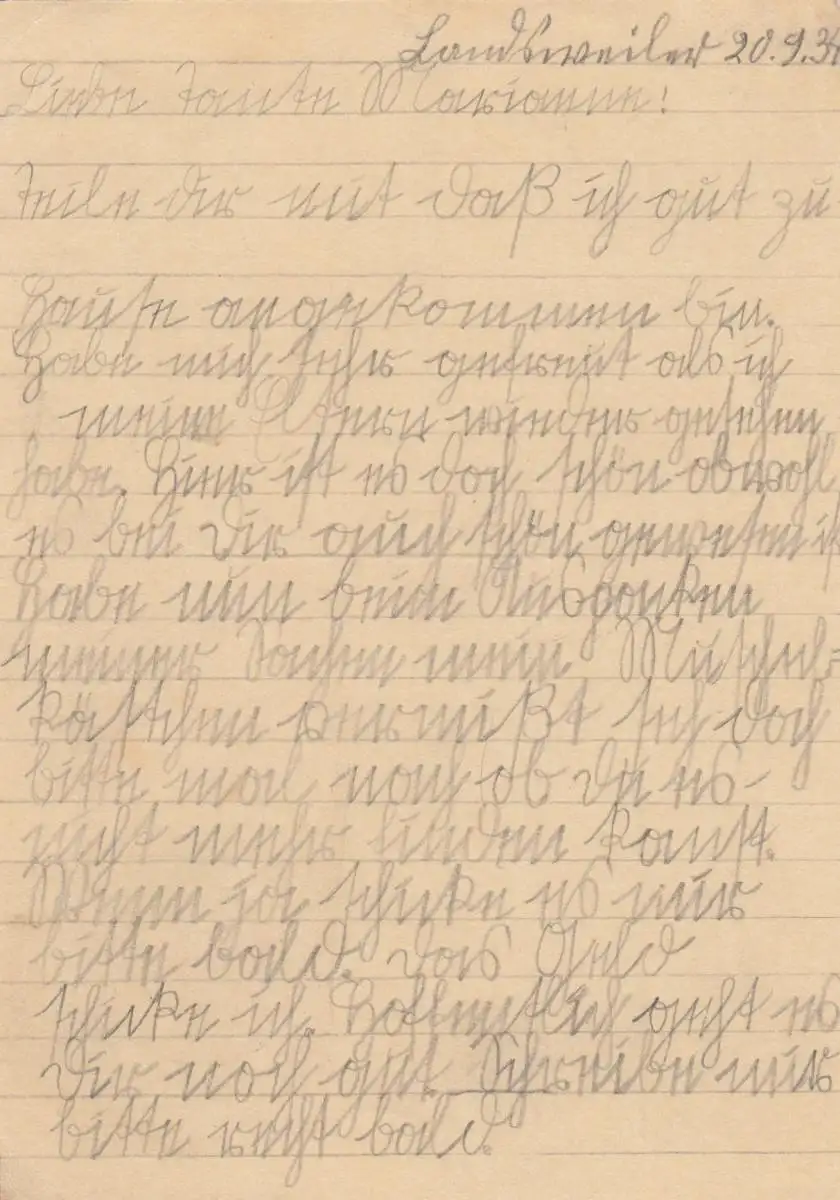 Landsweiler 20.9.34
Liebe Tante Marianne!
Teile dir mit daß ich gut zu
Hause angekommen bin.
Habe mich sehr gefreut als ich
meine Eltern wieder gesehen
habe. Hier ist es doch schön obwohl
es bei dir auch schön gewesen ist
Habe nun beim Auspacken
meiner Sachen mein Muschel=
kästchen vermißt sieh doch
bitte mal nach ob du es
nicht mehr finden kanst.
Wenn ja schicke es mir
bitte bald. Das Geld
schicke ich. Hoffentlich geht es
Dir noch gut. Schreibe mir
bitte recht bald.